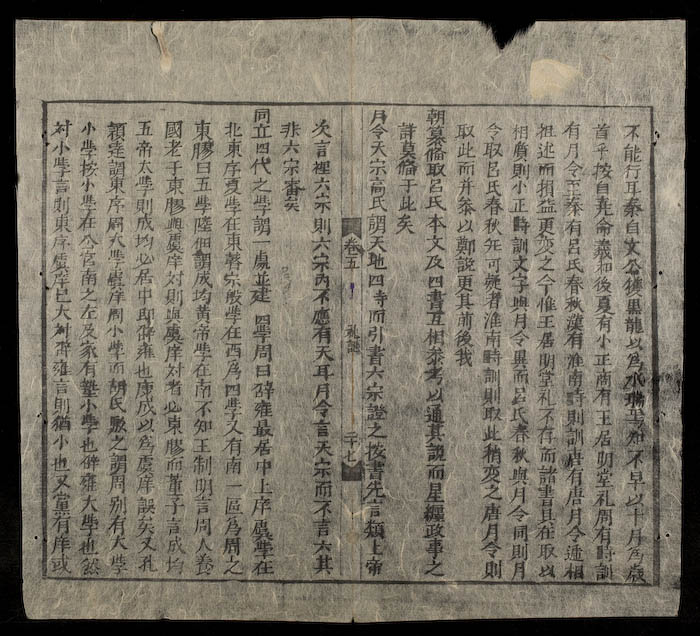 不能行耳秦自文公獲黑龍以爲水瑞焉知不早以十月爲歲
首乎按自堯命羲和後夏有小正商有王居明堂礼周有時訓
有月令至秦有呂氏春秋漢有淮南時則訓唐有唐月令遞相
祖述而損益更変之今惟王居明堂礼不存而諸書具在取以
相質則小正時訓文字與月令異而呂氏春秋與月令同則月
令取呂氏春秋無可疑者淮南時訓則取此稍变之唐月令則
取此而并叅以鄭說更其前後我
朝纂脩取呂氏本文及四書互相叅考以通其說而星纏政事之
詳莫僃于此矣
月令天宗高氏謂天地四時而引書六宗證之按書先言類上帝
次言禋六宗則六宗內不應有天耳月令言天宗而不言六其
非六宗審矣
同立四代之學謂一處並建四學周曰辟雍最居中上序虞學在
北東序夏學在東瞽宗殷學在西爲四學又有南一區爲周之
東膠曰五學陸佃謂成均黃帝學在南不知王制明言周人養
國老于東膠與虞庠对則與虞庠对者必東膠而董子言成均
五帝太學則成均必居中即辟雍也康成以爲虞庠誤矣又孔
穎達謂東序周大學虞庠周小學而胡氏駁之謂周别有大學
小學按小學在公宮南之左及家有塾小學也辟雍大學也然
对小學言則東序虞庠已大对辟雍言則猶小也又黨有庠或
卷五
礼謎
二十七